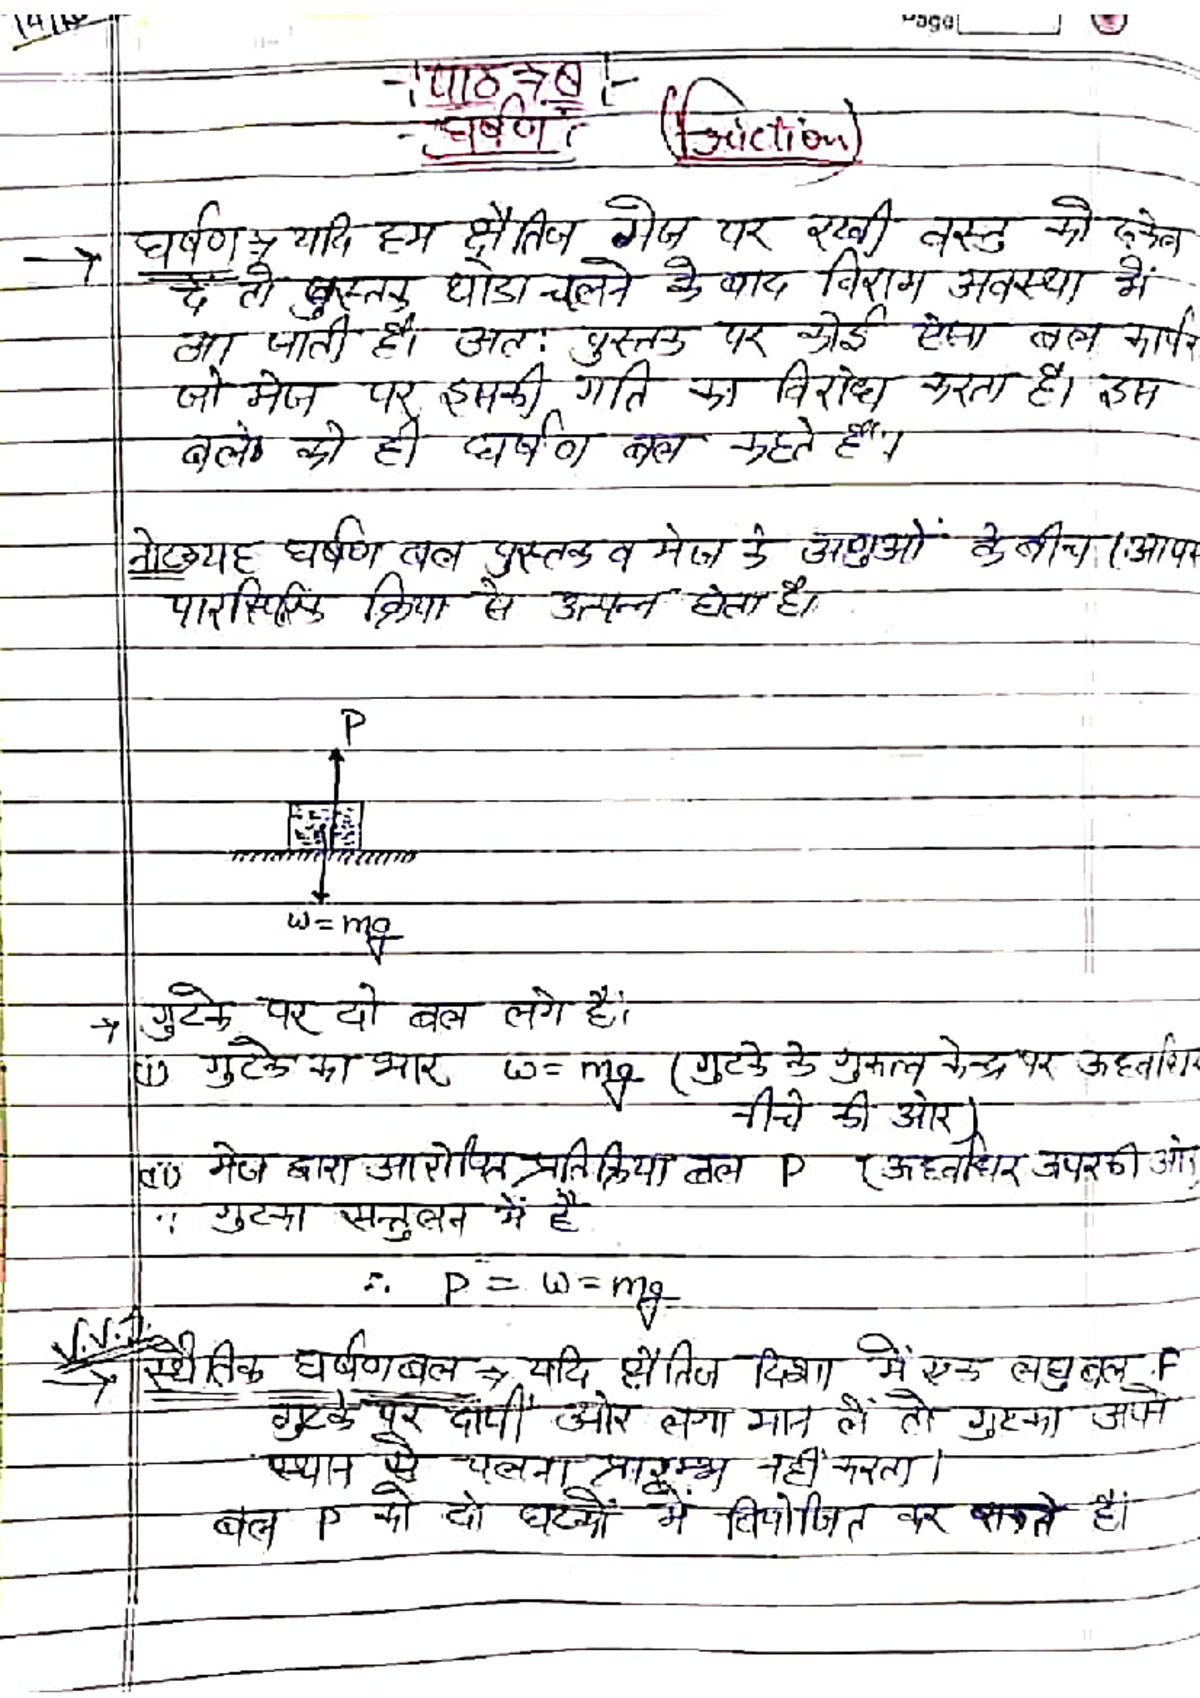 Page
पाठ → 8
घर्षण (friction)
→ घर्षण → यदि हम क्षैतिज मेज पर रखी वस्तु को ढकेल
दें तो पुस्तक थोडा चलने के बाद विराम अवस्था में
आ जाती है। अतः पुस्तक पर कोई ऐसा बल
जो मेज पर इसकी गति का विरोध करता है। इस
बल को ही घर्षण बल कहते हैं।
नोट→यह घर्षण बल पुस्तक व मेज के अणुओं के बीच
क्रिया से उत्पन्न होता है।
P
w = mg
→ गुटके पर दो बल लगे हैं।
(i) गुटके का भार w = mg (गुटके के गुरुत्व केन्द्र पर
नीचे की ओर)
(ii) मेज द्वारा आरोपित प्रतिक्रिया बल P (ऊर्ध्वाधर ऊपर की ओर
∵ गुटका सन्तुलन में है
∴ P = w = mg
V.V.I.
→ स्थैतिक घर्षण बल → यदि क्षैतिज दिशा में एक लघु बल F
गुटके पर दायीं ओर लगा मान लें तो गुटका अपने
स्थान से चलना प्रारम्भ नहीं करता।
बल P को दो घटकों में वियोजित कर सकते हैं।